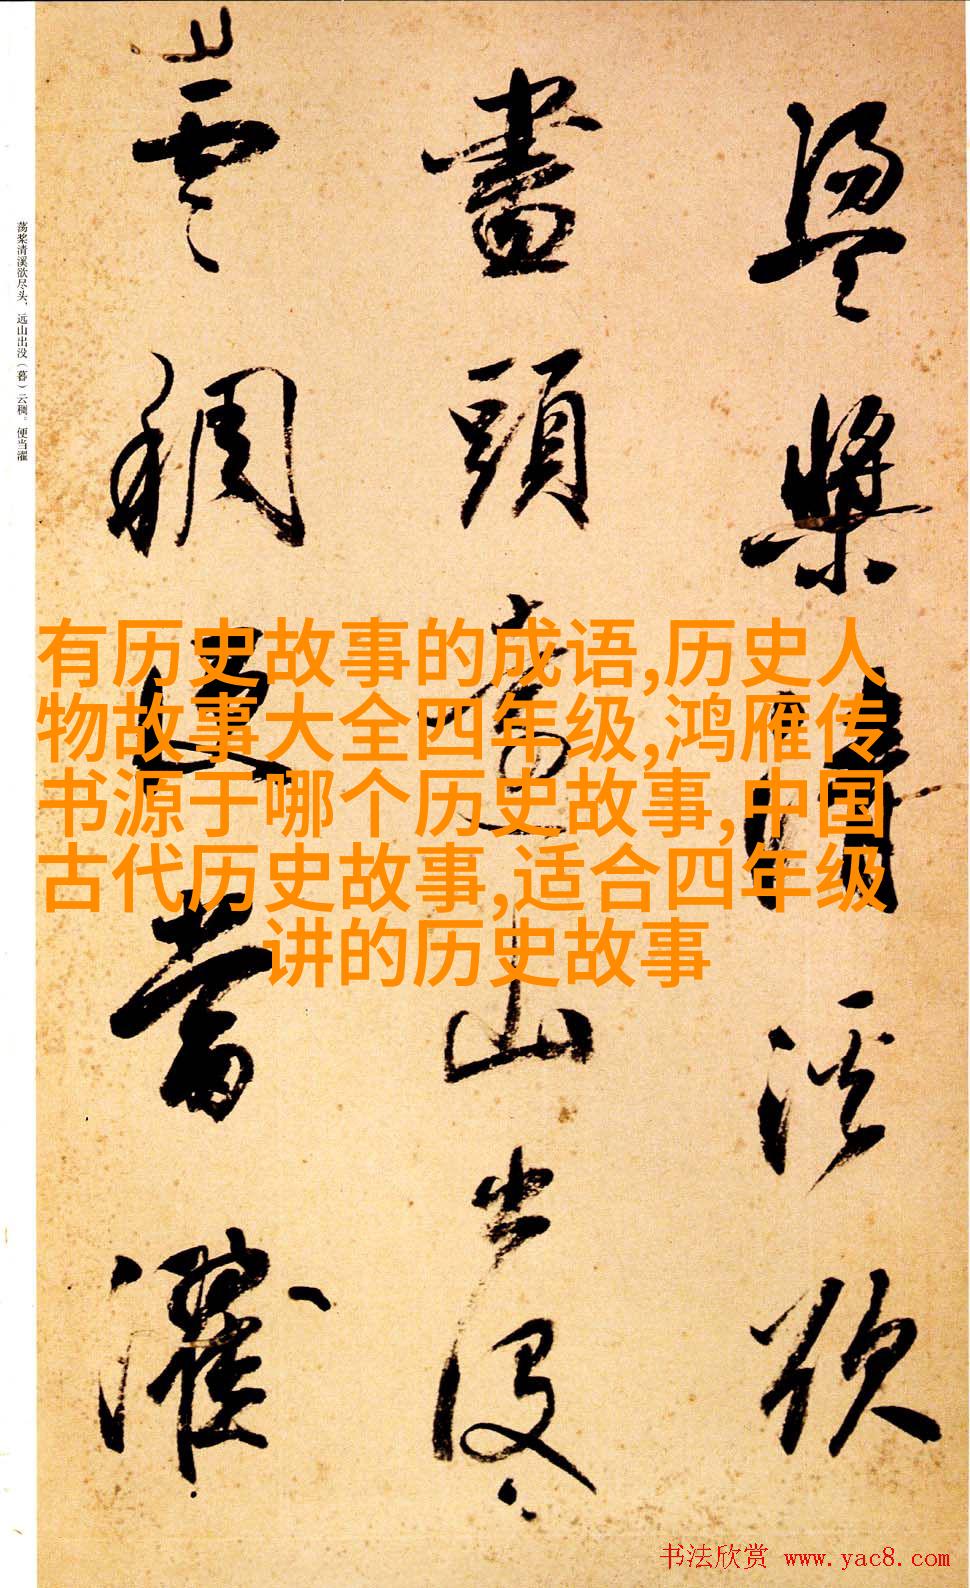 盪槳清溪欲
盡頭遠山出沒
雲稠便當濯
荡桨清溪欲尽头，远山出没（暮）云稠。便当濯
有历史故事的成语,历史人
物故事大全四年级,鸿雁传
书源于哪个历史故事,中国
古代历史故事,适合四年级
讲的历史故事
书法欣赏 www.yac8.com